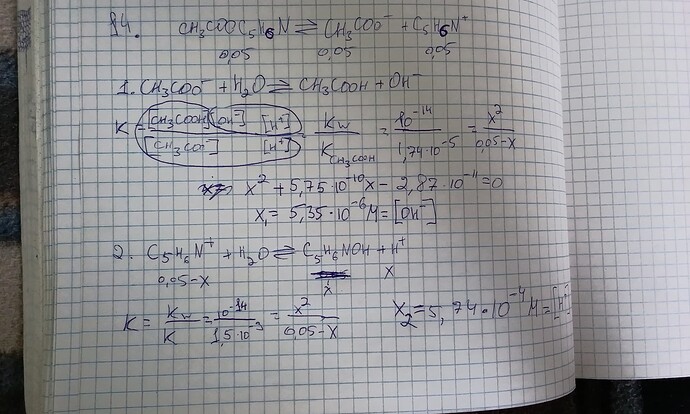 84. CH₃COOC₅H₆N ⇌ CH₃COO⁻ + C₅H₆N⁺
0,05 0,05 0,05
1. CH₃COO⁻ + H₂O ⇌ CH₃COOH + OH⁻
K = [CH₃COOH][OH⁻] [H⁺] / [CH₃COO⁻] [H⁺] = Kw / K CH₃COOH = 10⁻¹⁴ / 1,74·10⁻⁵ = x² / 0,05-x
x² + 5,75·10⁻¹⁰x - 2,87·10⁻¹¹ = 0
x₁ = 5,35·10⁻⁶ M = [OH⁻]
2. C₅H₆N⁺ + H₂O ⇌ C₅H₆NOH + H⁺
0,05-x x x
K = Kw / K = 10⁻¹⁴ / 1,5·10⁻⁹ = x² / 0,05-x x₂ = 5,74·10⁻⁴ M = [H⁺]